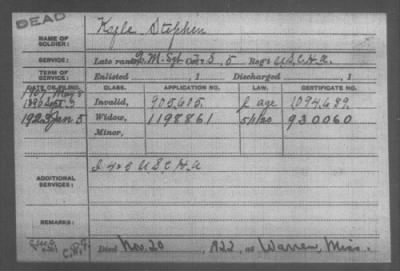 DEAD
NAME OF SOLDIER: Kyle Stephen
SERVICE: Late rank Q. M. Sgt Co's 5 Reg't U.S.C.H.A.
TERM OF SERVICE: Enlisted , 1 Discharged , 1
DATE OF FILING. CLASS. APPLICATION NO. LAW. CERTIFICATE NO.
Invalid, 905.605 age 1094.689.
1923 Jan 5 Widow, 1198861 930060
Minor,
ADDITIONAL SERVICES: U S C H A
REMARKS:
Died Nov. 20, 1922, at Warren, Miss.